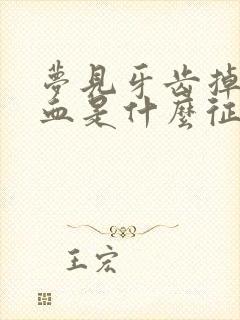 夢見牙齿掉
血是什麼征
王宏